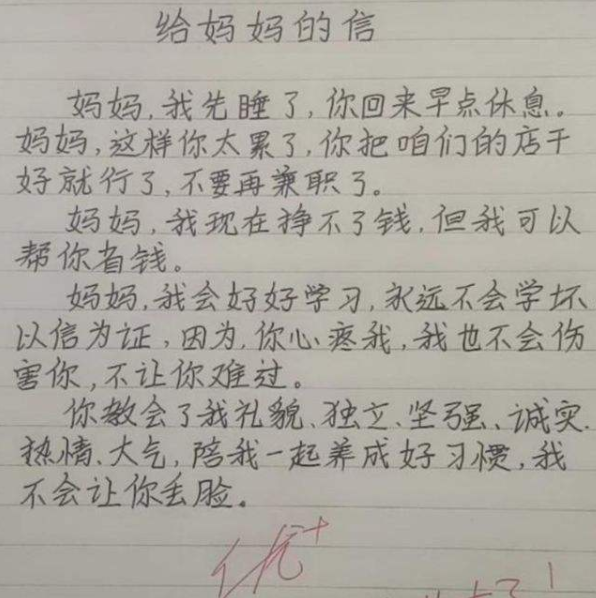 给妈妈的信
妈妈，我先睡了，你回来早点休息。
妈妈，这样你太累了，你把咱们的店干
好就行了，不要再兼职了。
妈妈，我现在挣不了钱，但我可以
帮你省钱。
妈妈，我会好好学习，永远不会学坏
以信为证，因为，你心疼我，我也不会伤
害你，不让你难过。
你教会了我礼貌、独立、坚强、诚实、
热情、大气，陪我一起养成好习惯，我
不会让你丢脸。
优+